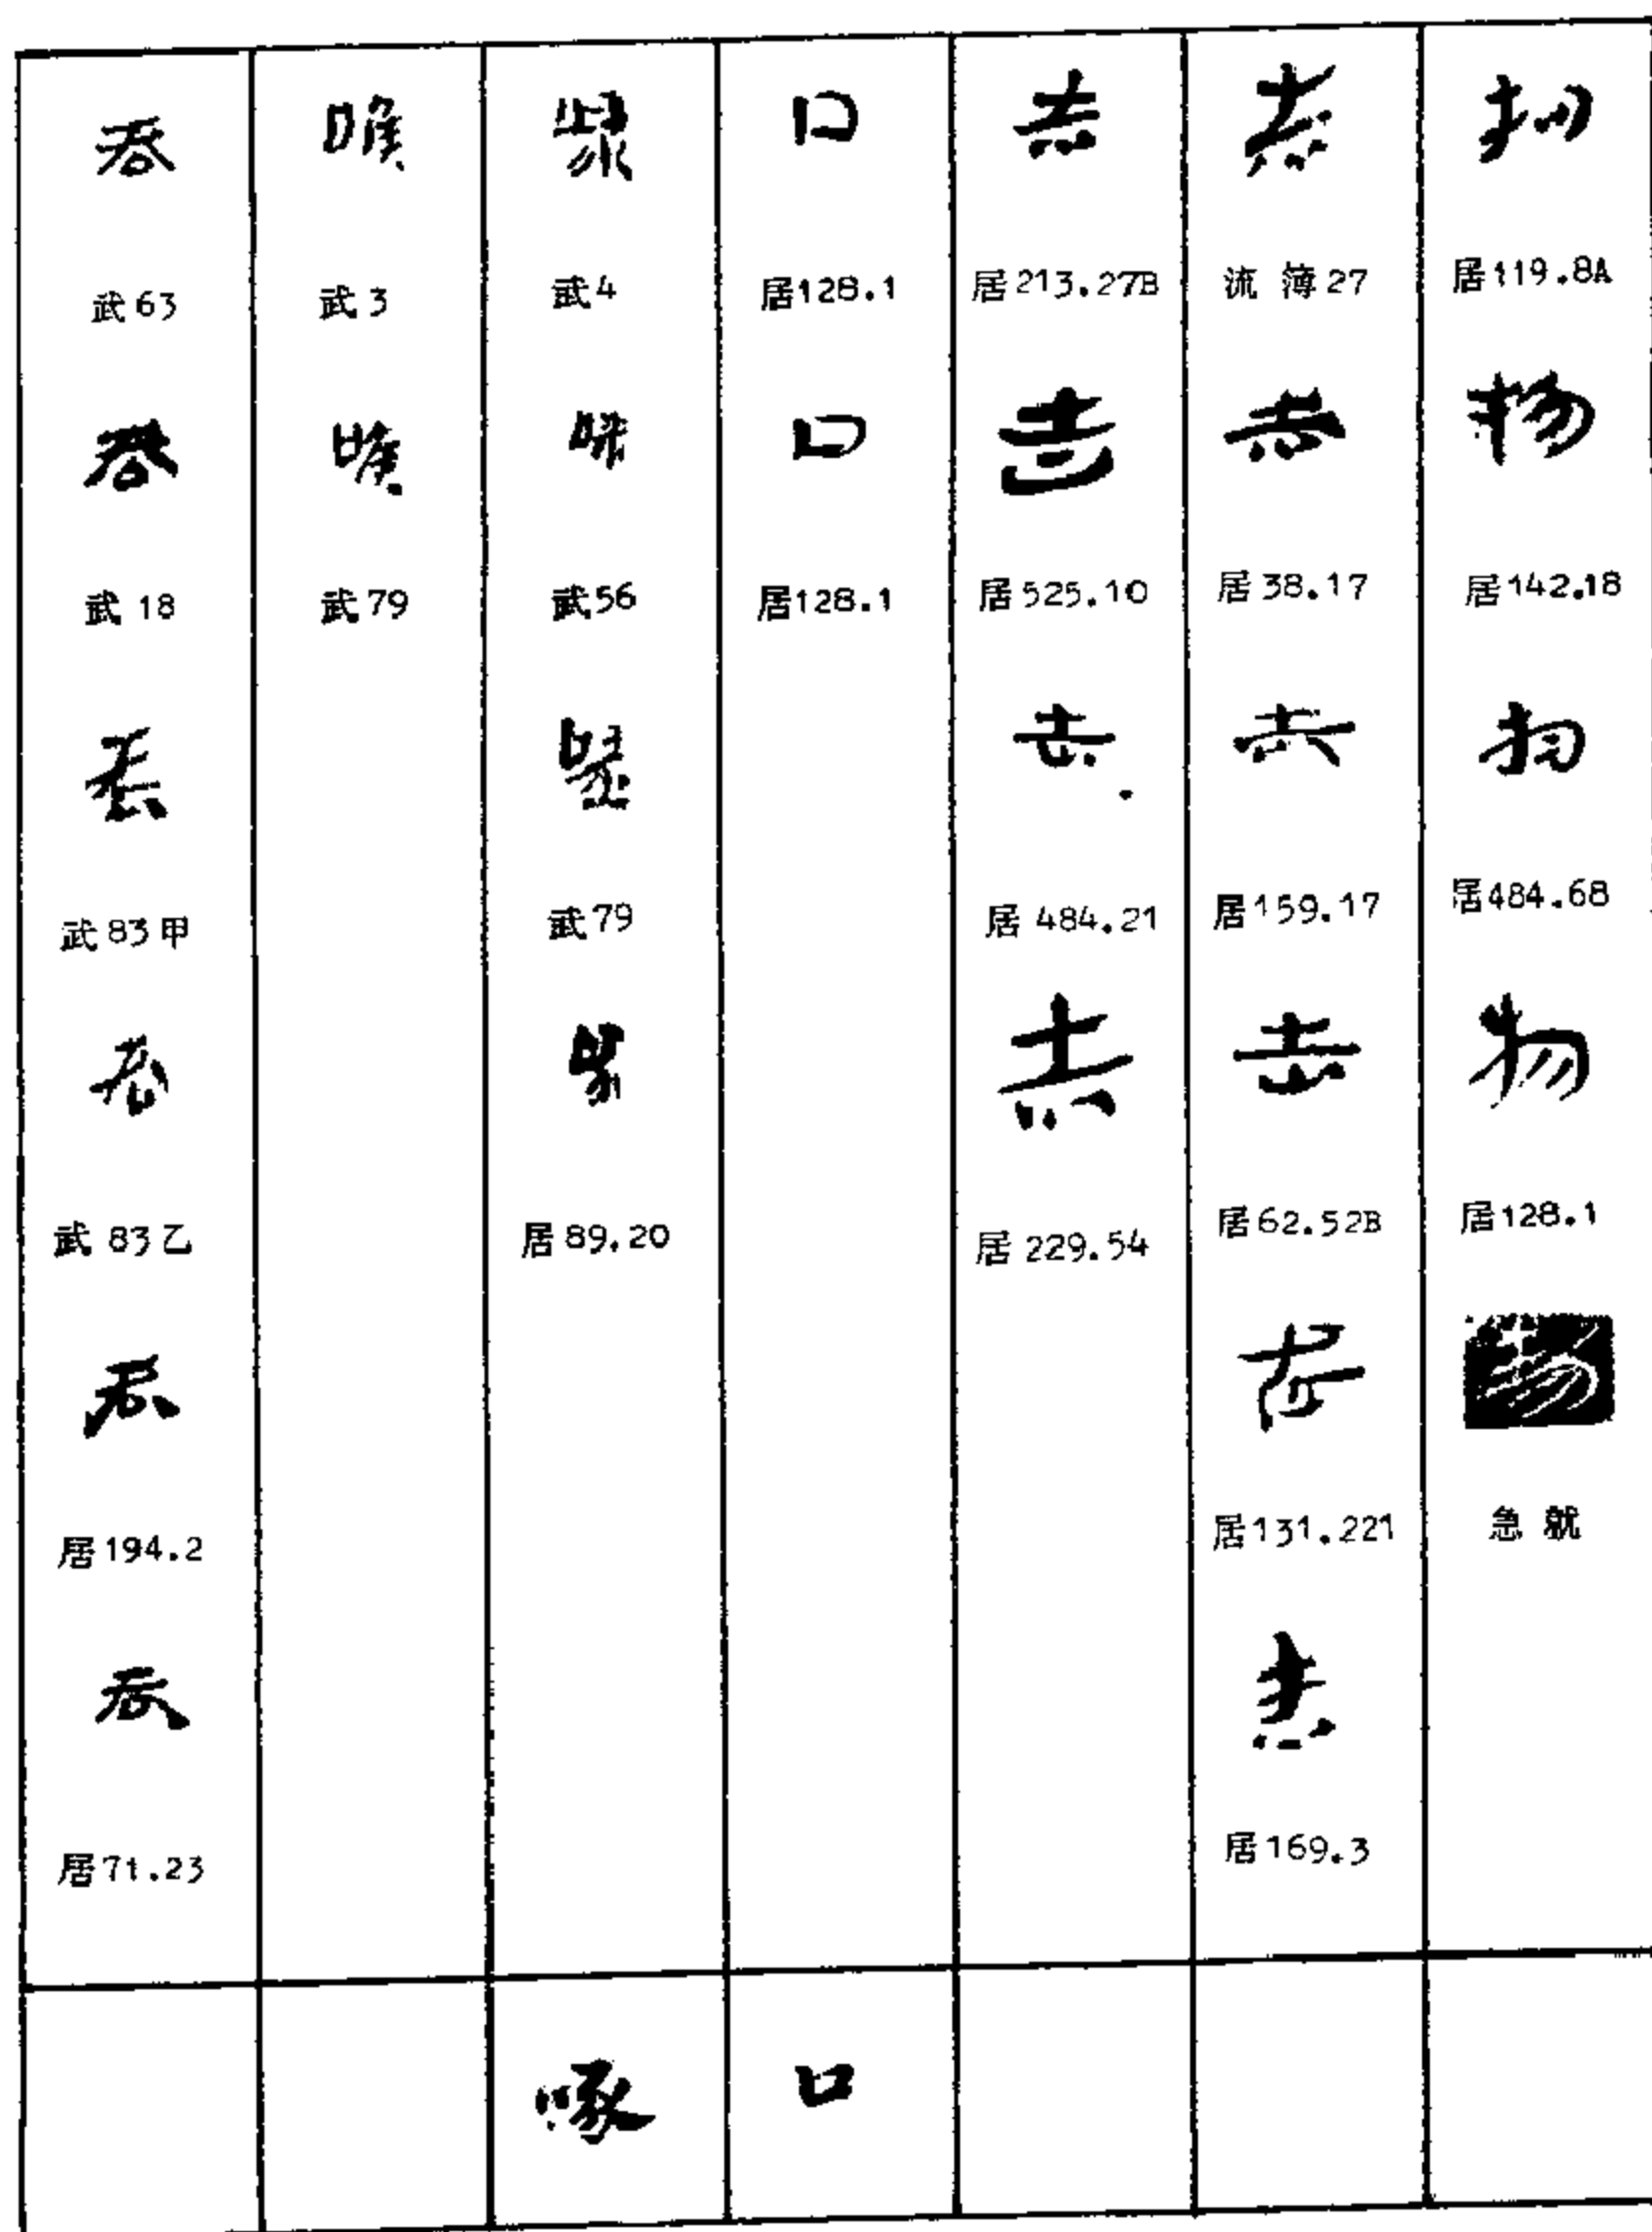 物
居119.8A
物
居142.18
物
居484.68
物
居128.1
物
急就
告
流簿27
告
居38.17
告
居159.17
告
居62.52B
告
居131.221
告
居169.3
告
居213.27B
告
居525.10
告
居484.21
告
居229.54
口
居128.1
口
居128.1
口
武4
武56
武79
居89.20
喉
武3
喉
武79
吞
武63
吞
武18
吞
武83甲
吞
武83乙
吞
居194.2
吞
居71.23